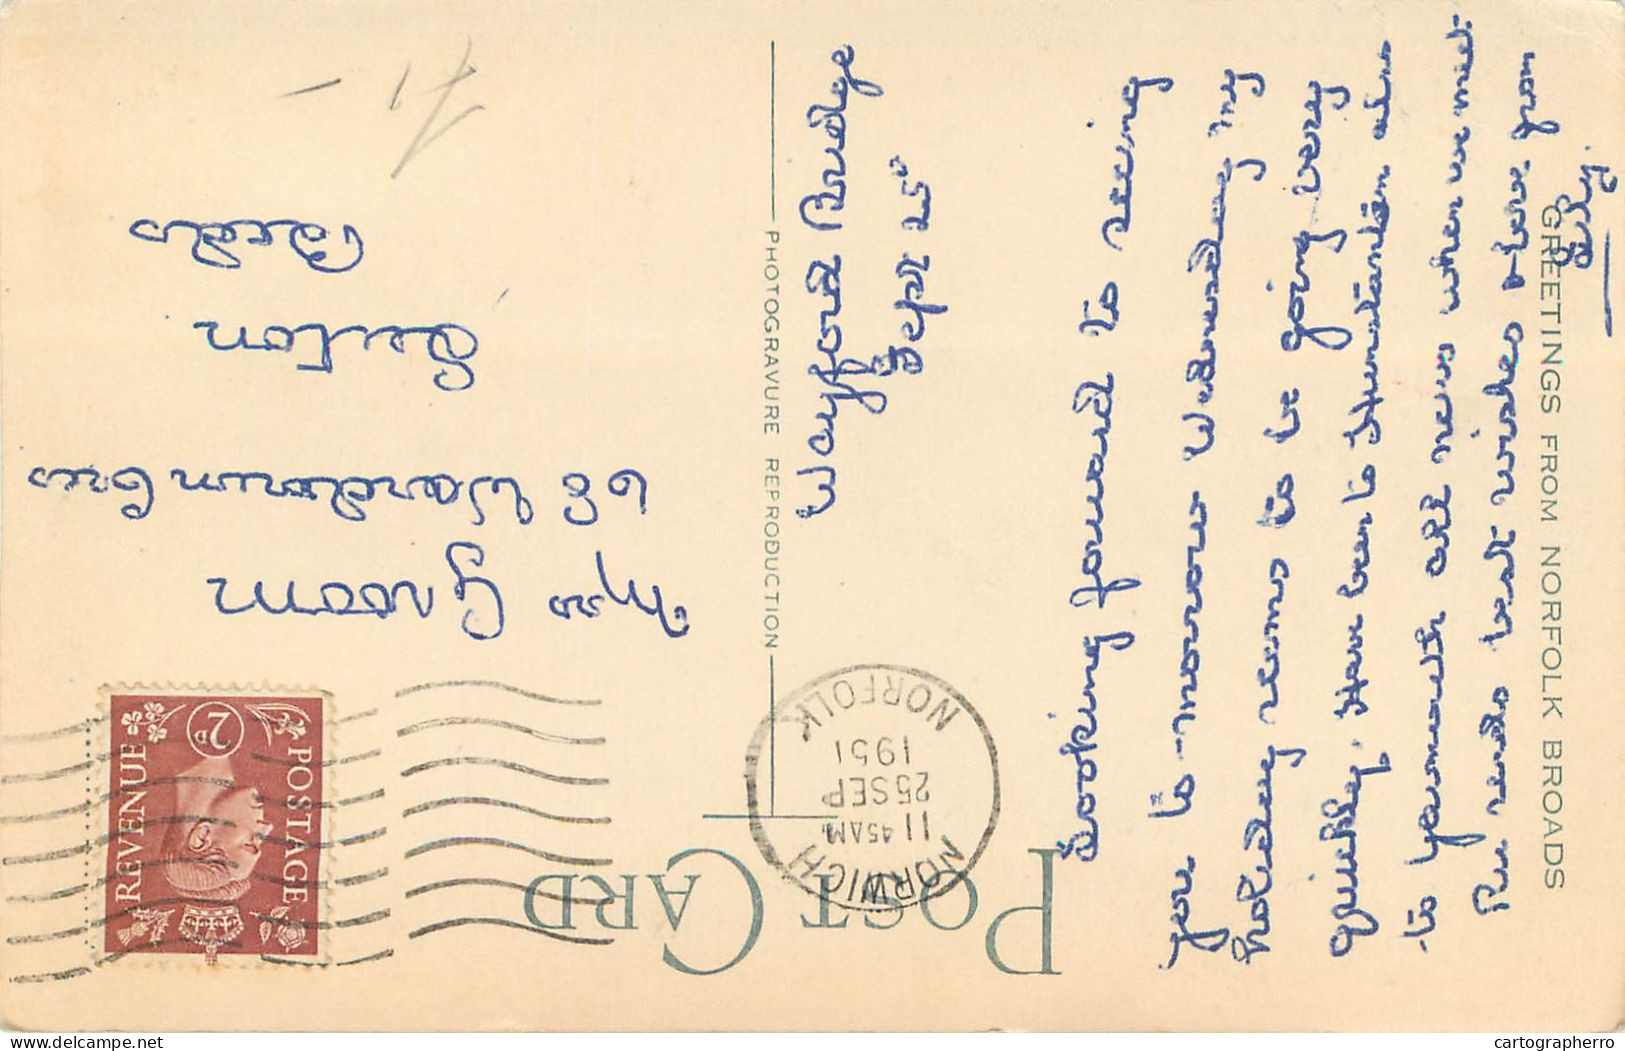 POST CARD
GREETINGS FROM NORFOLK BROADS
PHOTOGRAVURE REPRODUCTION
NORWICH
11 45AM
25 SEP
1951
NORFOLK
POSTAGE
REVENUE
2D
Wayford Bridge
Sept 25"
Looking forward to seeing
you to-morrow Wednesday my
holiday seems to be going very
quickly. Have been to Hunstanton also
to Yarmouth all news when we meet.
Pru sends best wishes & love from
Lily.
Mrs Groom
68 Wardown Cres
Luton
Beds
1/-
cartographerro